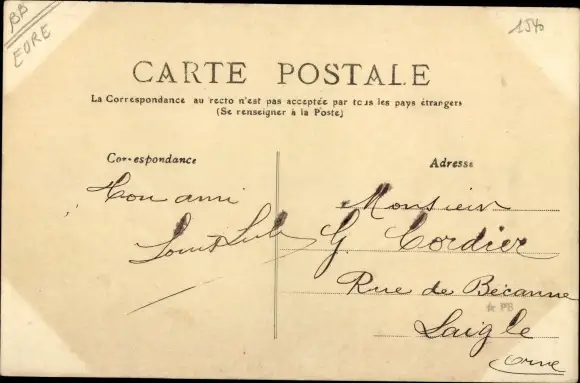 BB
EURE
1540
CARTE POSTALE
La Correspondance au recto n'est pas acceptée par tous les pays étrangers
(Se renseigner à la Poste)
Correspondance
Adresse
Ton ami
Louis
Monsieur
G. Cordier
Rue de Bécanne
PB
Laigle
Orne